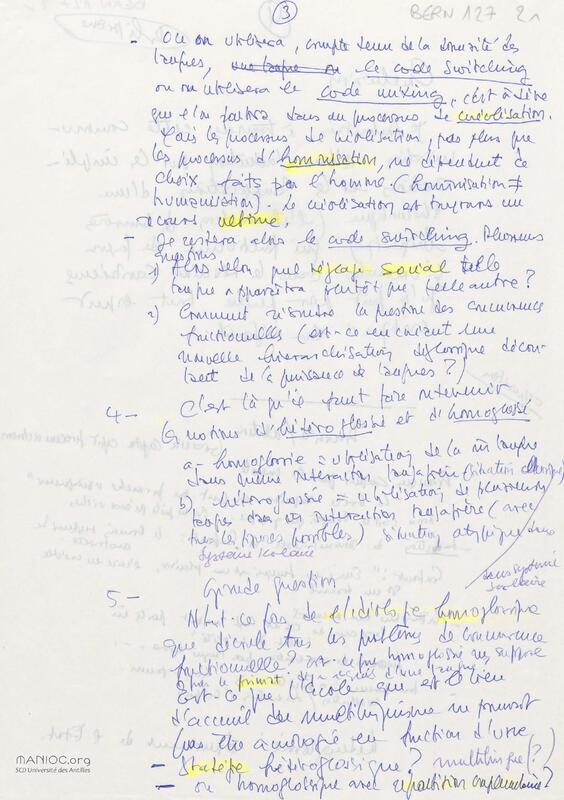 3
BERN 127 21
- Ou on utilisera, compte tenu de la des
langues, le code switching
ou on utilisera le code mixing, c'est à dire
que l'on dans un processus de créolisation.
Mais les processus de créolisation, pas plus que
les processus d'hominisation, ne dépendent de
choix faits par l'homme (hominisation ≠
humanisation). La créolisation est toujours un
recours ultime.
- Je alors le code switching. Plusieurs
questions
1) Alors selon quel social telle
langue apparaîtra plutôt que telle autre ?
2) Comment résoudre la question des concurrences
fonctionnelles (est-ce en créant une
nouvelle hiérarchisation diglossique découlant
de la puissance de langues ?)
4- C'est là qu'il faut faire intervenir
les notions d'hétéroglossie et d'homoglossie
a) homoglossie = utilisation de la m langue
dans même interaction langagière (situation )
b) hétéroglossie = utilisation de plusieurs
langues dans une interaction langagière (avec
tous les possibles) situation atypique dans
système scolaire
dans système
scolaire
5- Grande question
N'est-ce pas de l'idéologie homoglossique
que découle tous les problèmes de concurrence
fonctionnelle ? est-ce que homoglossie ne suppose
pas le primat, d'une langue.
Est-ce que l'école qui est le lieu
d'accueil du multilinguisme ne pourrait
pas être aménagé en fonction d'une
- stratégie hétéroglossique ? multilingue (?)
- ou homoglossique avec répartition ?
MANIOC.org
SCD Université des Antilles